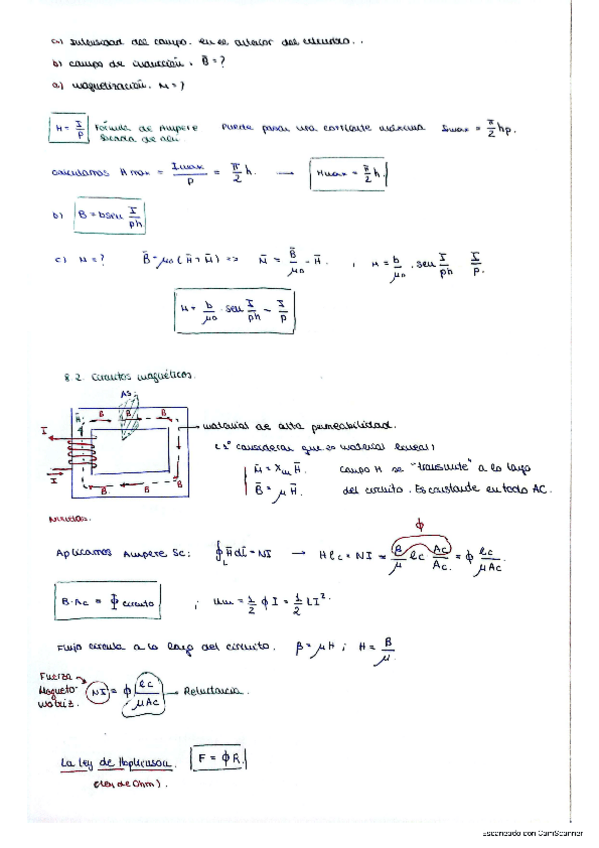 a) Intensidad del campo. en el exterior del
b) campo de inducción. B̄=?
a) magnetización. M=?
H = I/p Fórmula de Ampere Puede pasar una corriente máxima Imax = π/2 hp.
calculamos Hmax = Imax/p = π/2 h. → Hmax = π/2 h.
b) B = b sen I/ph
c) M=? B̄ = μ0 (H̄+M̄) => M̄ = B̄/μ0 - H̄. , M = b/μ0 . sen I/ph I/p.
M = b/μ0 . sen I/ph - I/p
8.2. Circuitos magnéticos.
AS.
B B B
I
material de alta permeabilidad.
consideran que es material lineal)
I
M̄ = Xm H̄. campo H se "transmite" a lo largo
B B B
B̄ = μ H̄. del circuito. Es constante en todo AC.
Φ
Aplicamos Ampere Sc: ∮L H̄ dl̄ = NI → H lc = NI = B/μ lc Ac/Ac. = Φ lc/μAc.
B·Ac = Φ circuito ; Um = 1/2 Φ I = 1/2 LI².
Flujo circula a lo largo del circuito. B = μH ; H = B/μ.
Fuerza
Magneto-
motriz.
NI = Φ lc/μAc → Reluctancia.
La Ley de Hopkinson. F = ΦR.
(Ley de Ohm).
Escaneado con CamScanner